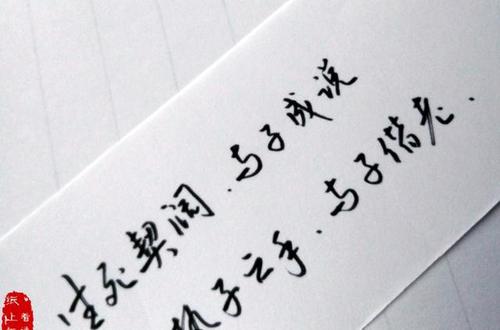 生死契阔.与子成说
执子之手.与子偕老.
纸上
看